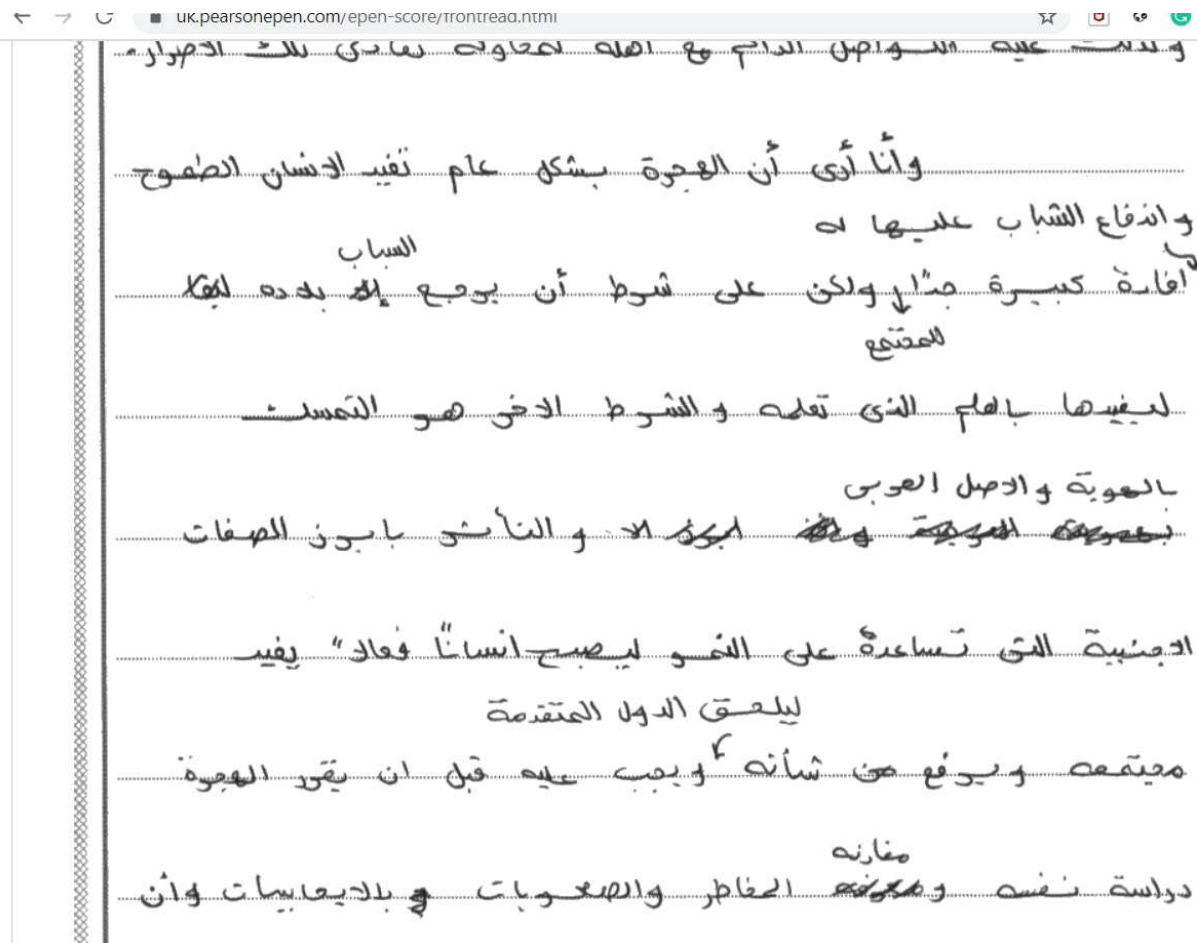 uk.pearsonepen.com/epen-score/frontread.html
عليه التواصل الدائم مع اهله لمحاولة تفادي تلك الاضرار.
وأنا أرى أن الهجرة بشكل عام تفيد الانسان الطموح
واندفاع الشباب عليها له
الشباب
افادة كبيرة جدًا ولكن على شرط أن يرجع بلاده
للمجتمع
ليفيدها بالعلم الذي تعلمه والشرط الاخر هو التمسك
بالهوية والاصل العربي
والتأثر بابرز الصفات
الاجنبية التي تساعدة على النمو ليصبح انسانًا فعالاً يفيد
ليلحق الدول المتقدمة
مجتمعه ويرفع من شأنه ويجب عليه قبل ان يقرر الهجرة
مقارنه
دراسة نفسه و المخاطر والصعوبات بالايجابيات وأن